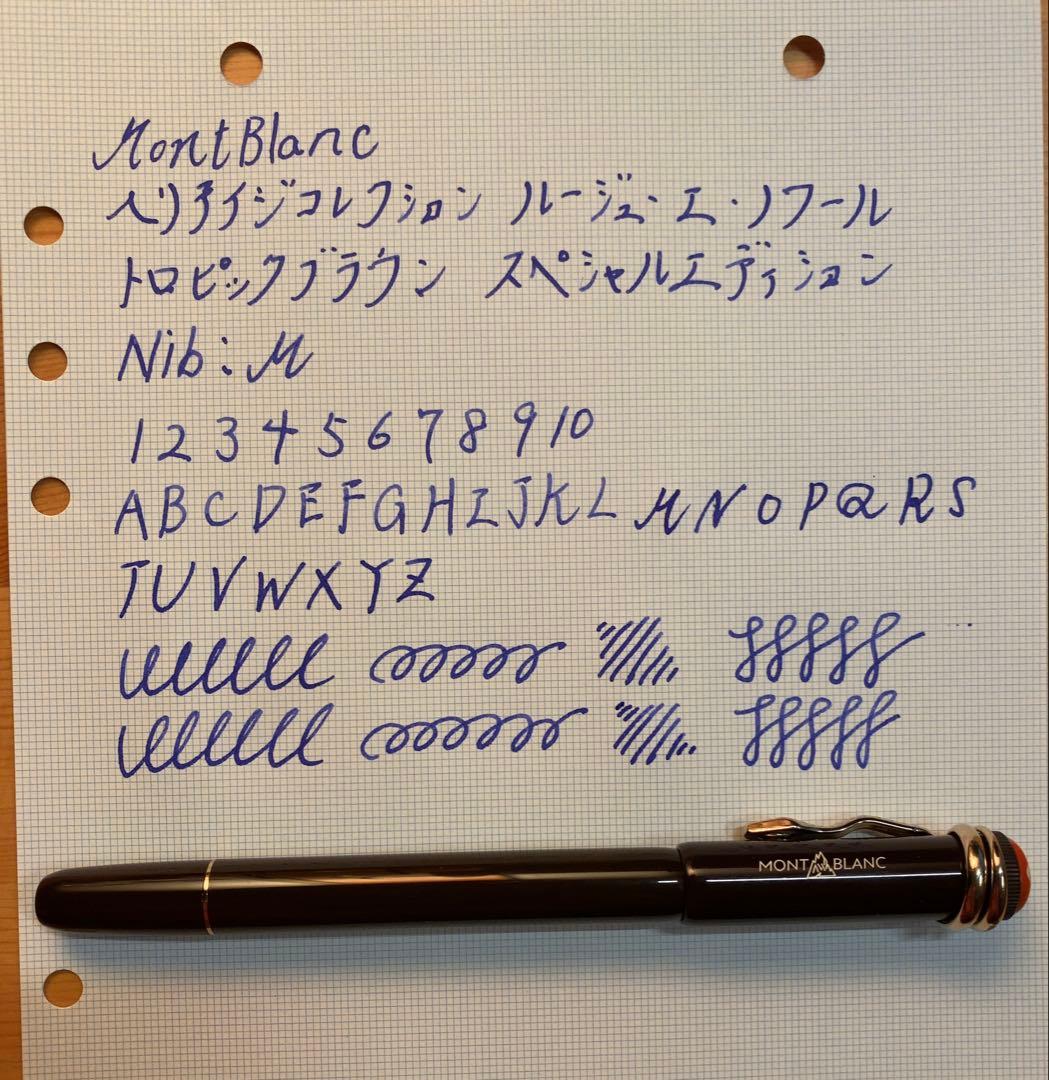 MontBlanc
ヘリテイジコレクション ルージュ・エ・ノワール
トロピックブラウン スペシャルエディション
Nib:M
1 2 3 4 5 6 7 8 9 10
A B C D E F G H I J K L M N O P Q R S
T U V W X Y Z
MONTBLANC